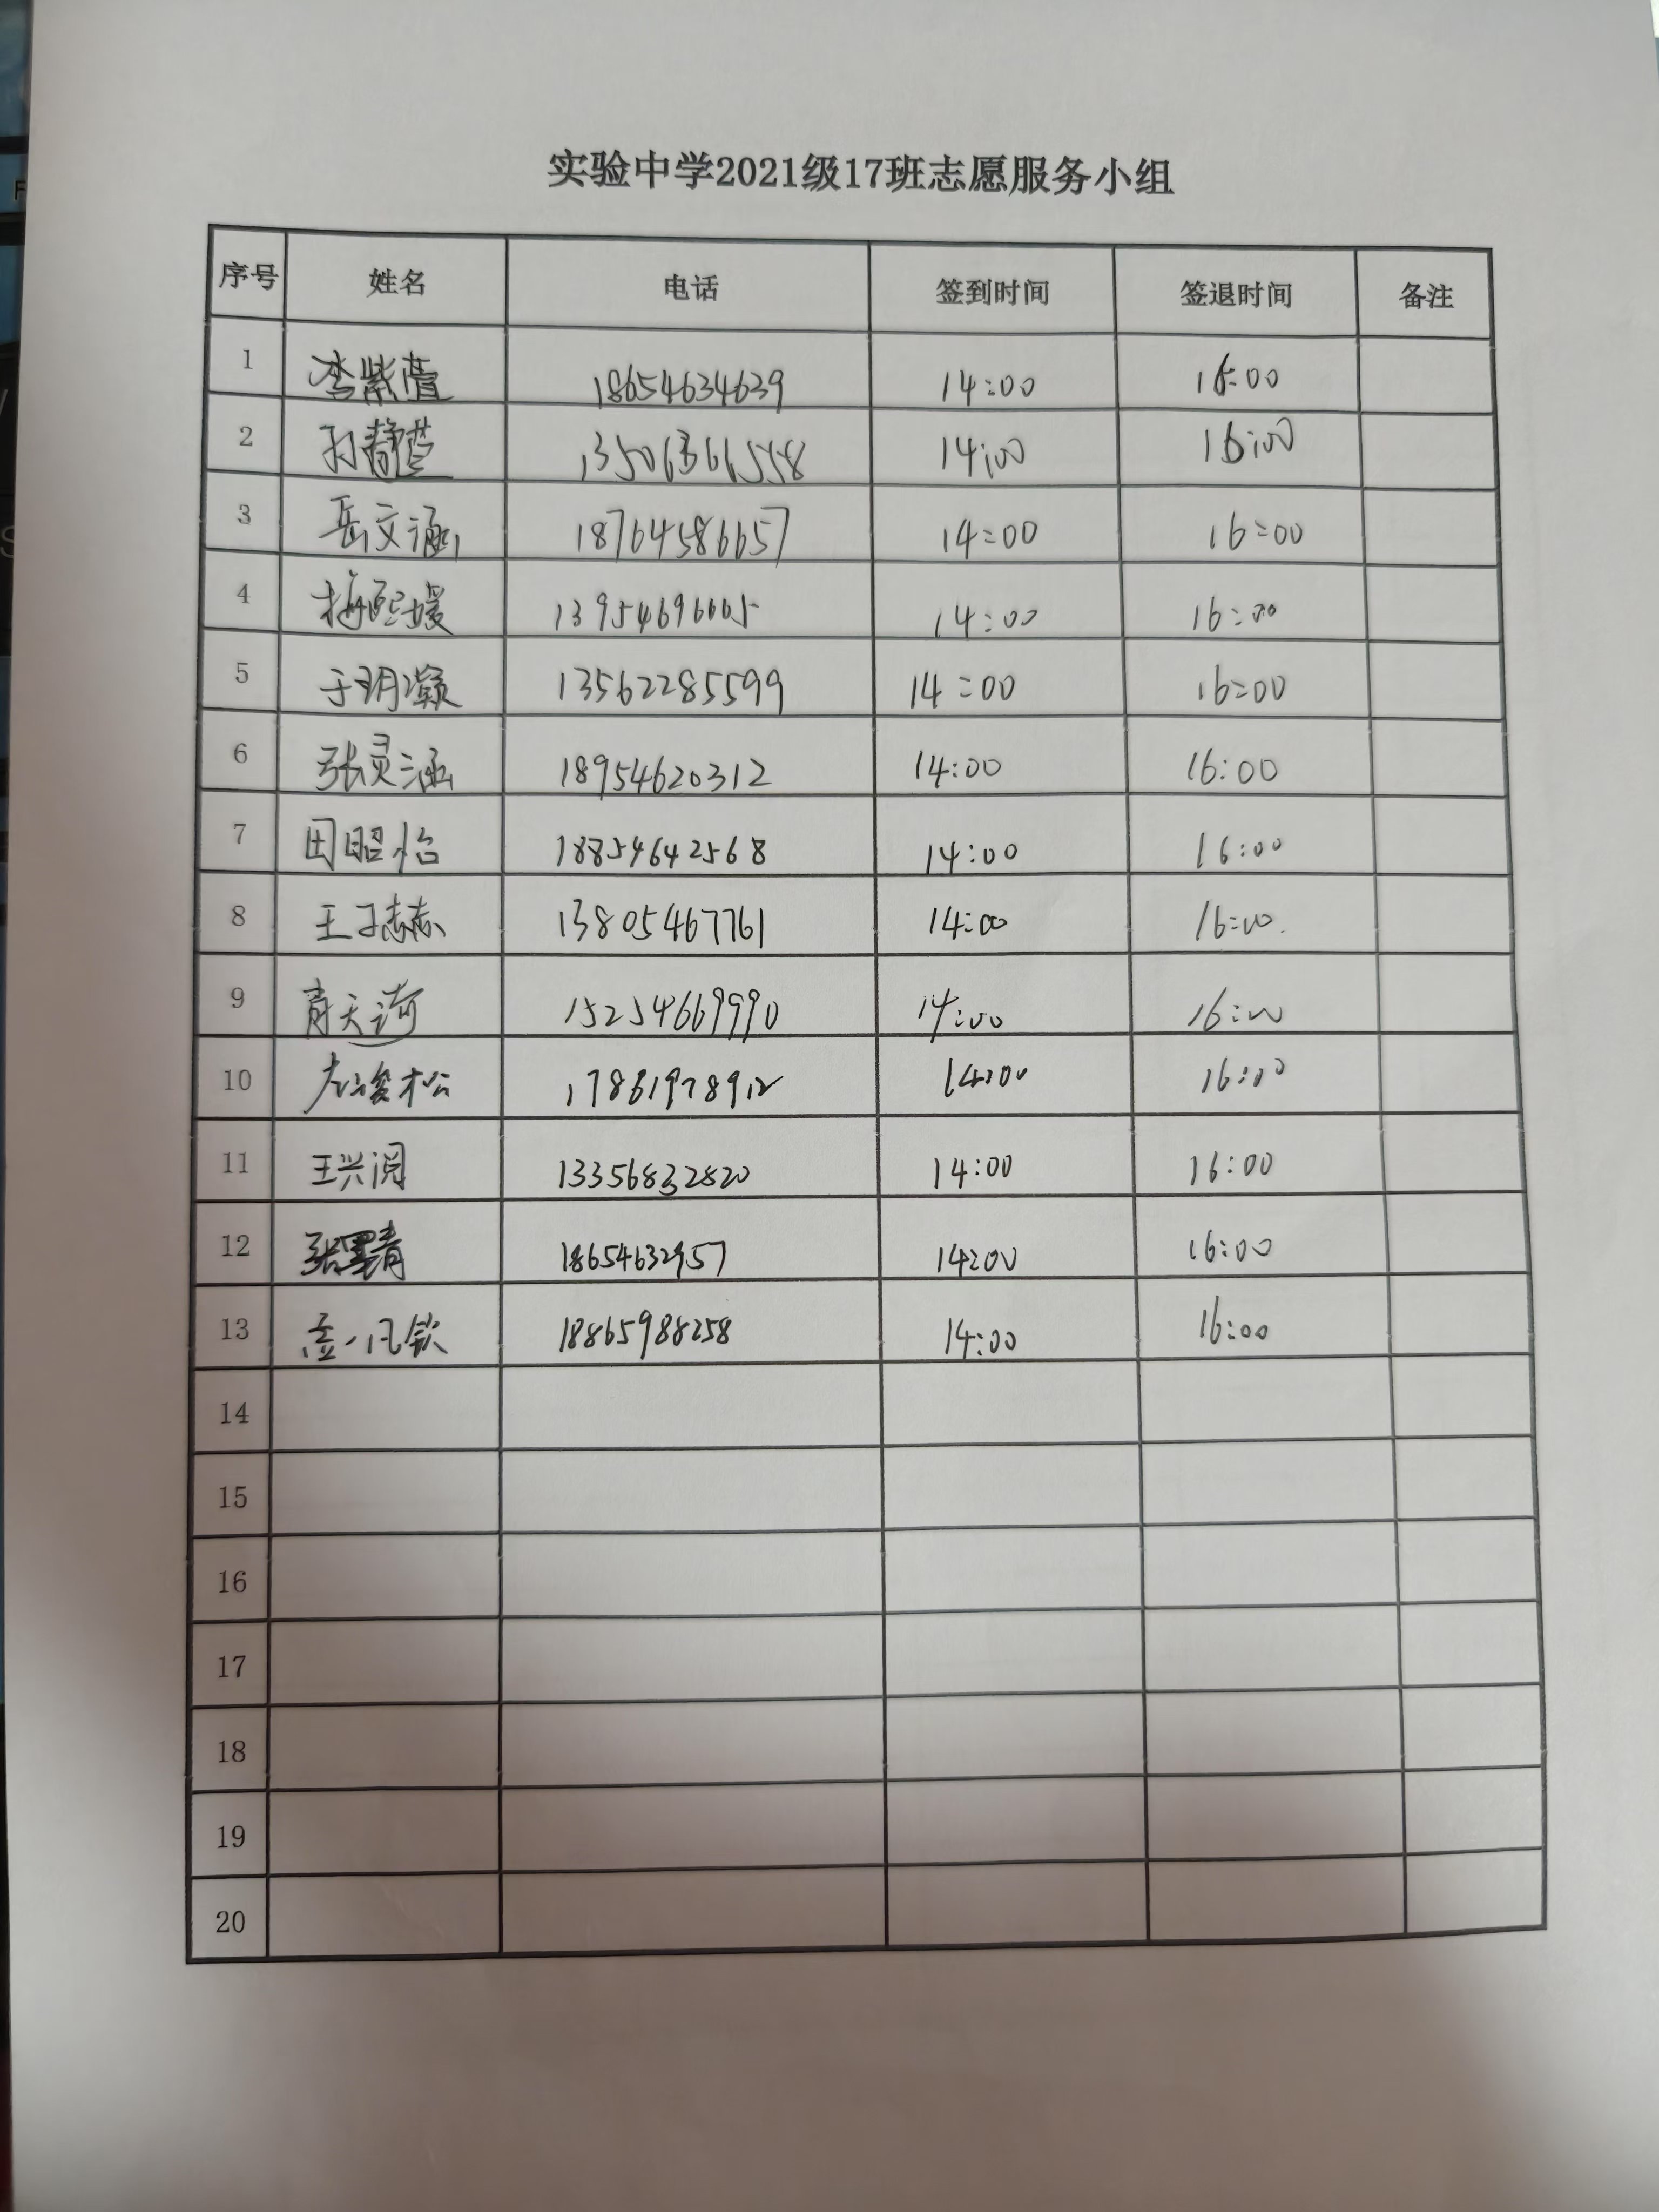 实验中学2021级17班志愿服务小组
序号 姓名 电话 签到时间 签退时间 备注
1 李紫萱 18654634639 14:00 16:00
2 孙静萱 13506366558 14:00 16:00
3 岳文涵 18764586657 14:00 16:00
4 梅熙媛 13954696665 14:00 16:00
5 于玥灏 13562285599 14:00 16:00
6 张灵涵 18954620312 14:00 16:00
7 田昭怡 18854642568 14:00 16:00
8 王子 13805467761 14:00 16:00
9 天 15254669990 14:00 16:00
10 松 17861978912 14:00 16:00
11 王兴阅 13356832820 14:00 16:00
12 张墨青 18654632957 14:00 16:00
13 孟一凡钦 18865988258 14:00 16:00
14
15
16
17
18
19
20